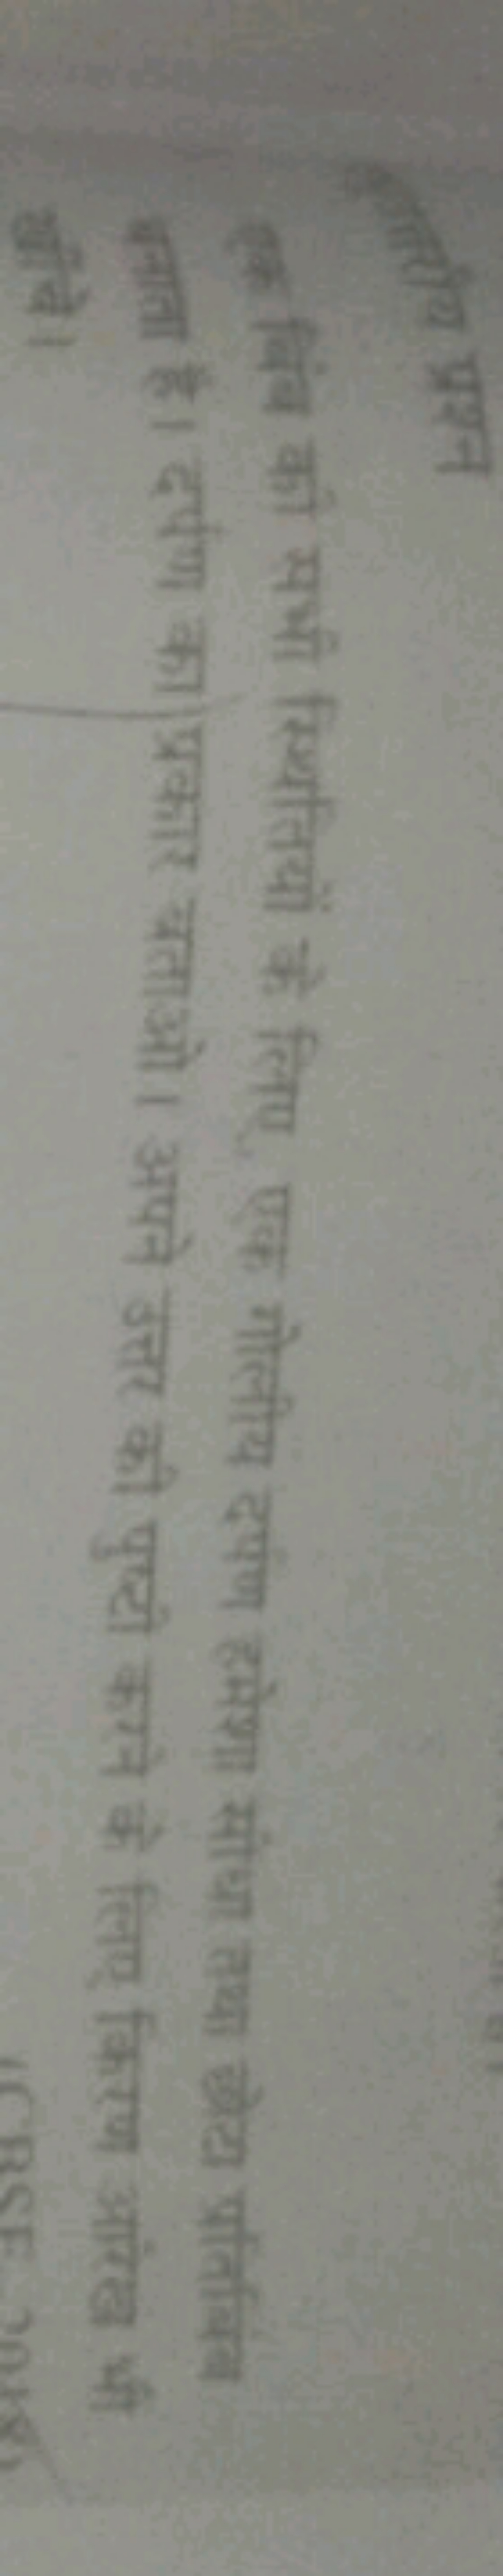 प्रश्न
एक बिंब की सभी स्थितियों के लिए, एक गोलीय दर्पण हमेशा सीधा तथा छोटा प्रतिबिंब
बनाता है। दर्पण का प्रकार बताओ। अपने उत्तर की पुष्टी करने के लिए किरण आरेख भी
खींचे।
(CBSE 2018)